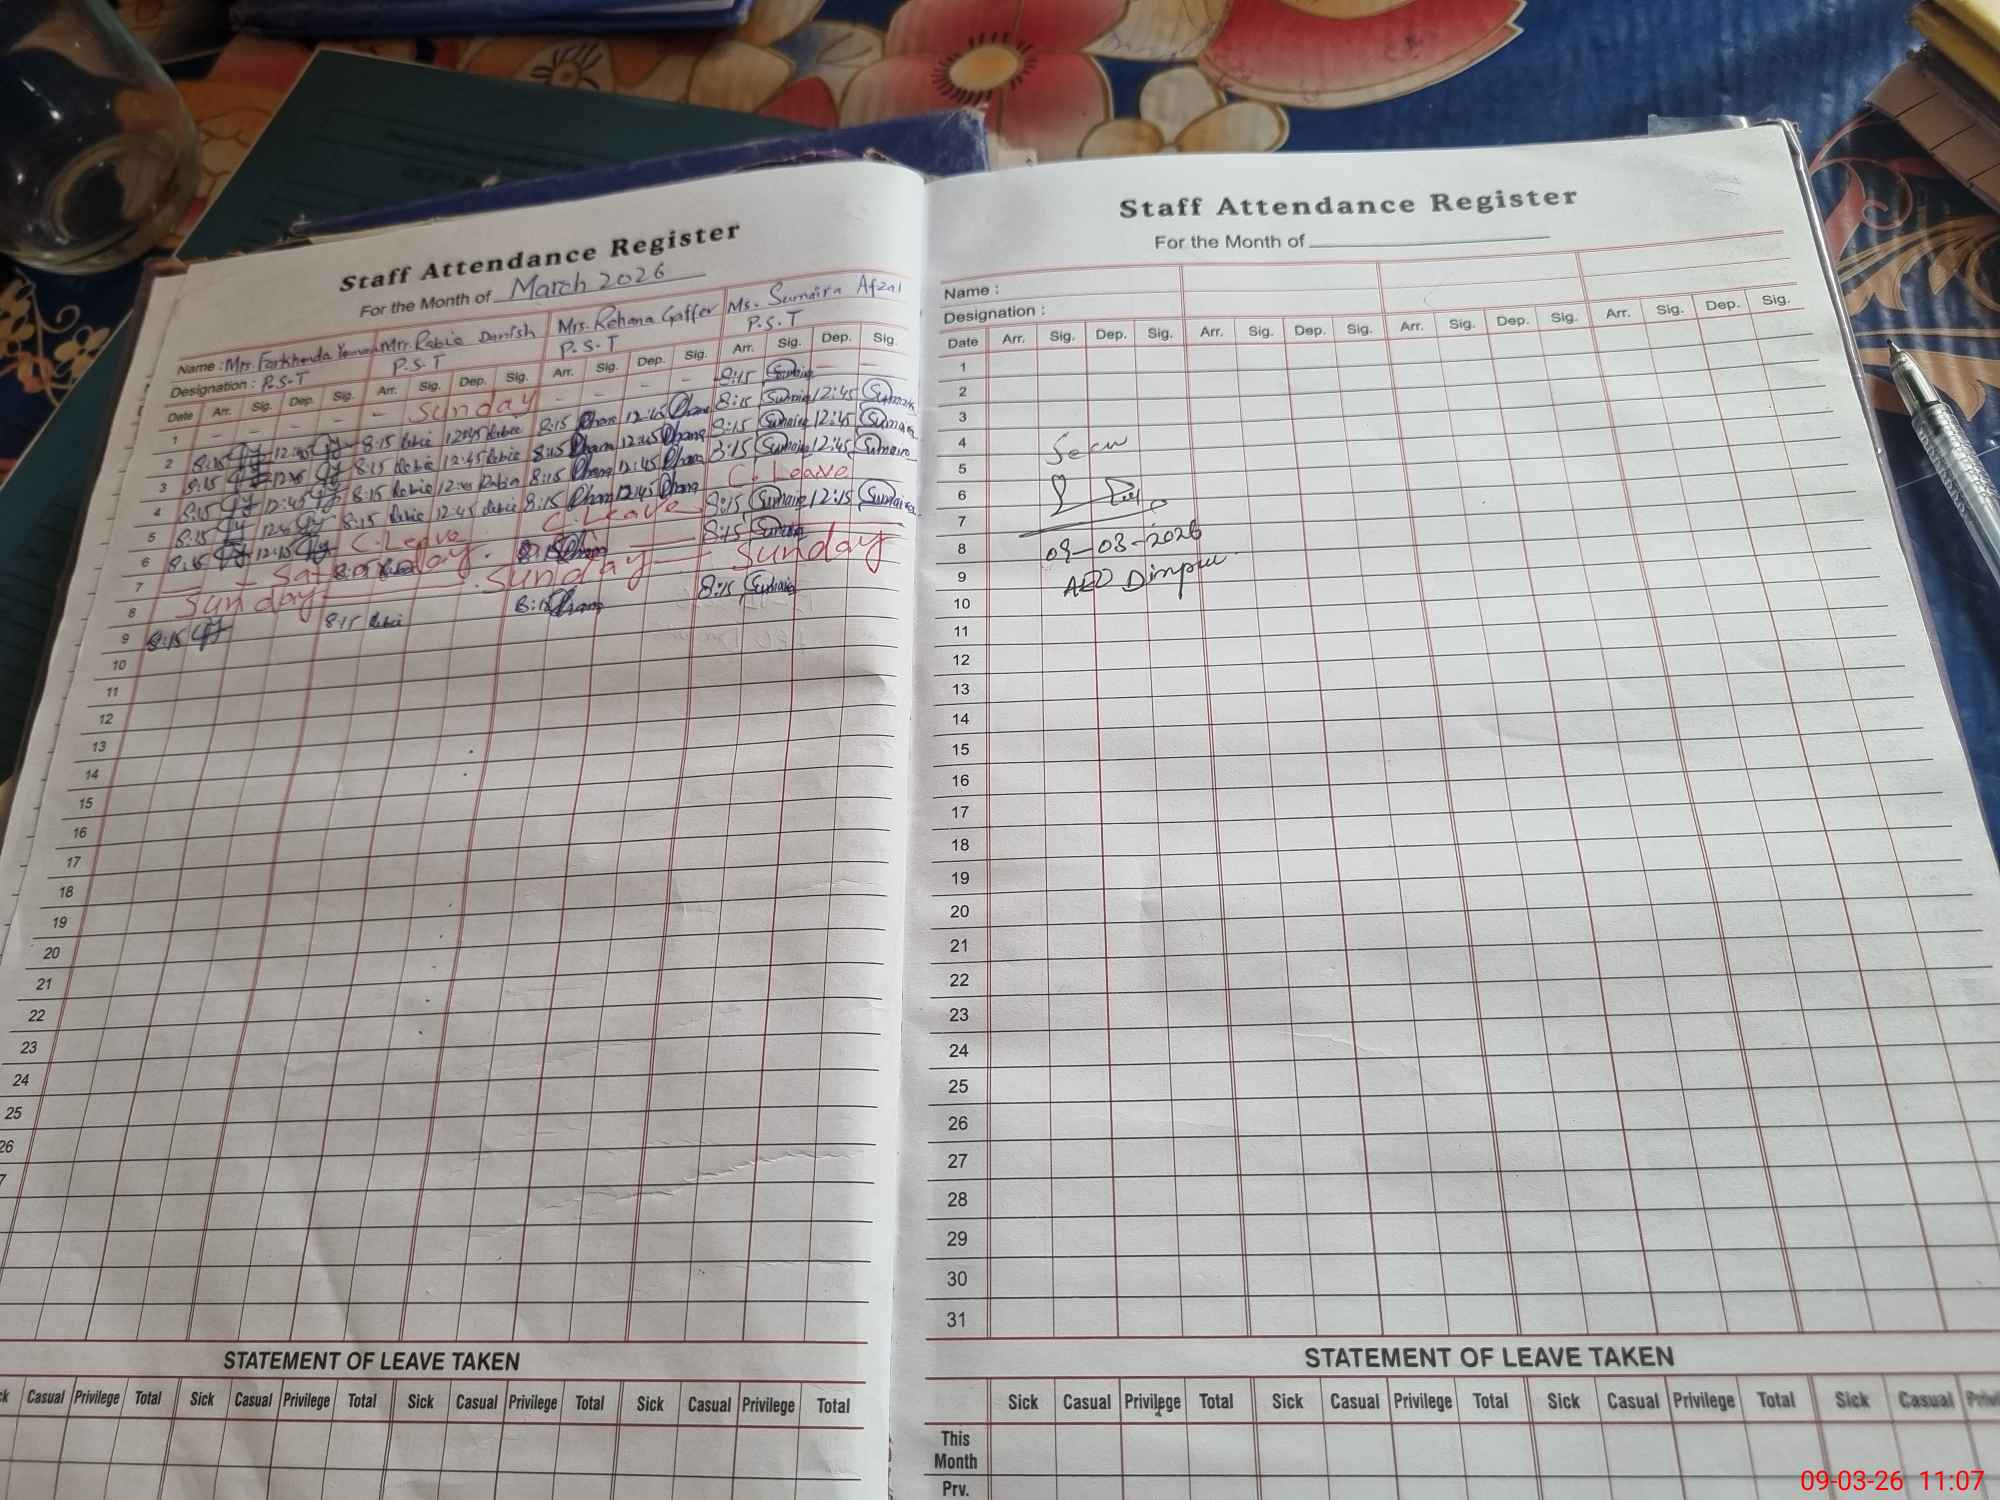 Staff Attendance Register
For the Month of March 2026
Name : Mrs. Farkhanda Mrs. Rabia Danish Mrs. Rehana Gaffer Ms. Sumaira Afzal
Designation : P.S.T P.S.T P.S.T P.S.T
Date Arr. Sig. Dep. Sig. Arr. Sig. Dep. Sig. Arr. Sig. Dep. Sig. Arr. Sig. Dep. Sig.
1 - - - - - Sunday - - - - 8:15 Sumaira - -
2 8:15 12:45 8:15 Rabia 12:45 Rabia 8:15 12:45 8:15 Sumaira 12:45 Sumaira
3 8:15 8:15 Rabia 12:45 Rabia 8:15 12:45 8:15 Sumaira 12:45 Sumaira
4 8:15 12:45 8:15 Rabia Rabia 8:15 12:45 8:15 Sumaira 12:45 Sumaira
5 8:15 8:15 Rabia 12:45 Rabia 8:15 12:45 C. Leave
6 8:15 12:15 C. Leave C. Leave 8:15 Sumaira 12:15 Sumaira
7 Saturday 8:15 Sumaira
8 Sunday Sunday Sunday
9 8:15 8:15 Rabia 8:15 8:15 Sumaira
10
11
12
13
14
15
16
17
18
19
20
21
22
23
24
25
26
7
STATEMENT OF LEAVE TAKEN
Casual Privilege Total Sick Casual Privilege Total Sick Casual Privilege Total Sick Casual Privilege Total
Staff Attendance Register
For the Month of
Name :
Designation :
Date Arr. Sig. Dep. Sig. Arr. Sig. Dep. Sig. Arr. Sig. Dep. Sig. Arr. Sig. Dep. Sig.
1
2
3
4
5
6
7
8 09-03-2026
9 AEO Dinpur
10
11
12
13
14
15
16
17
18
19
20
21
22
23
24
25
26
27
28
29
30
31
STATEMENT OF LEAVE TAKEN
Sick Casual Privilege Total Sick Casual Privilege Total Sick Casual Privilege Total Sick Casual
This
Month
Prv.
09-03-26 11:07